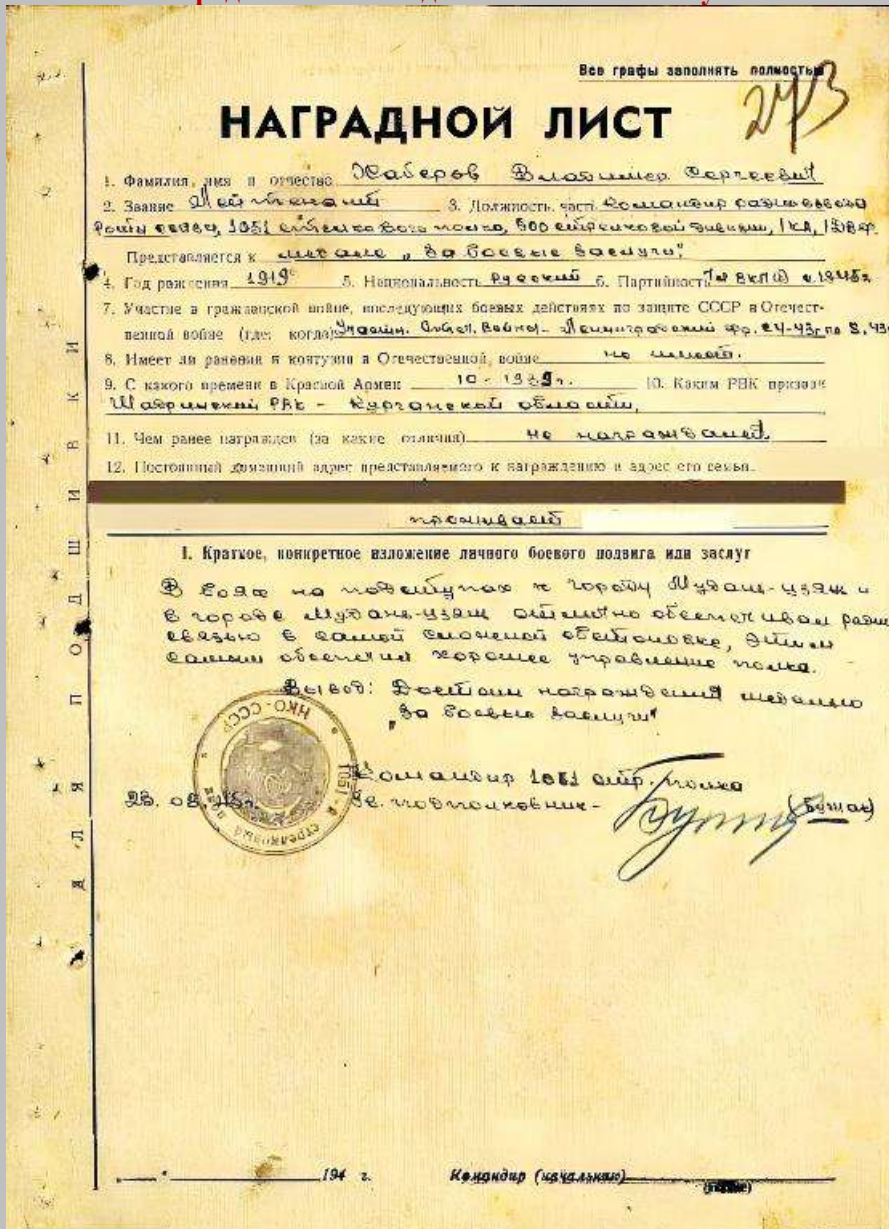 Все графы заполнять полностью
273
НАГРАДНОЙ ЛИСТ
1. Фамилия, имя и отчество Хаберов Владимир Сергеевич
2. Звание Лейтенант 3. Должность, часть Командир радиовзвода
роты связи, 1051 стрелкового полка, 300 стрелковой дивизии, 1КА, 1ДВФ.
Представляется к медали „За боевые заслуги".
4. Год рождения 1919 5. Национальность Русский 6. Партийность ВКП(б) с 1945г
7. Участие в гражданской войне, последующих боевых действиях по защите СССР и Отечест-
венной войне (где, когда) Ленинградский фр.
8. Имеет ли ранения и контузии в Отечественной войне не имеет.
9. С какого времени в Красной Армии 10-1939г. 10. Каким РВК призван
РВК - Курганской области,
11. Чем ранее награжден (за какие отличия) не награждался
12. Постоянный домашний адрес представляемого к награждению и адрес его семьи
проживает
I. Краткое, конкретное изложение личного боевого подвига или заслуг
В боях на подступах к городу Мудань-цзян и
в городе Мудань-цзян отлично обеспечивал радио
связью в самой сложной обстановке, этим
самым обеспечил хорошее управление полка.
Вывод: Достоин награждения медалью
„За боевые заслуги"
Командир 1051 стр. полка
23.08.45г. Гв. подполковник -
НКО-СССР
1051-й стрелковый полк
ДЛЯ ПОДШИВКИ
194 г. Командир (начальник)